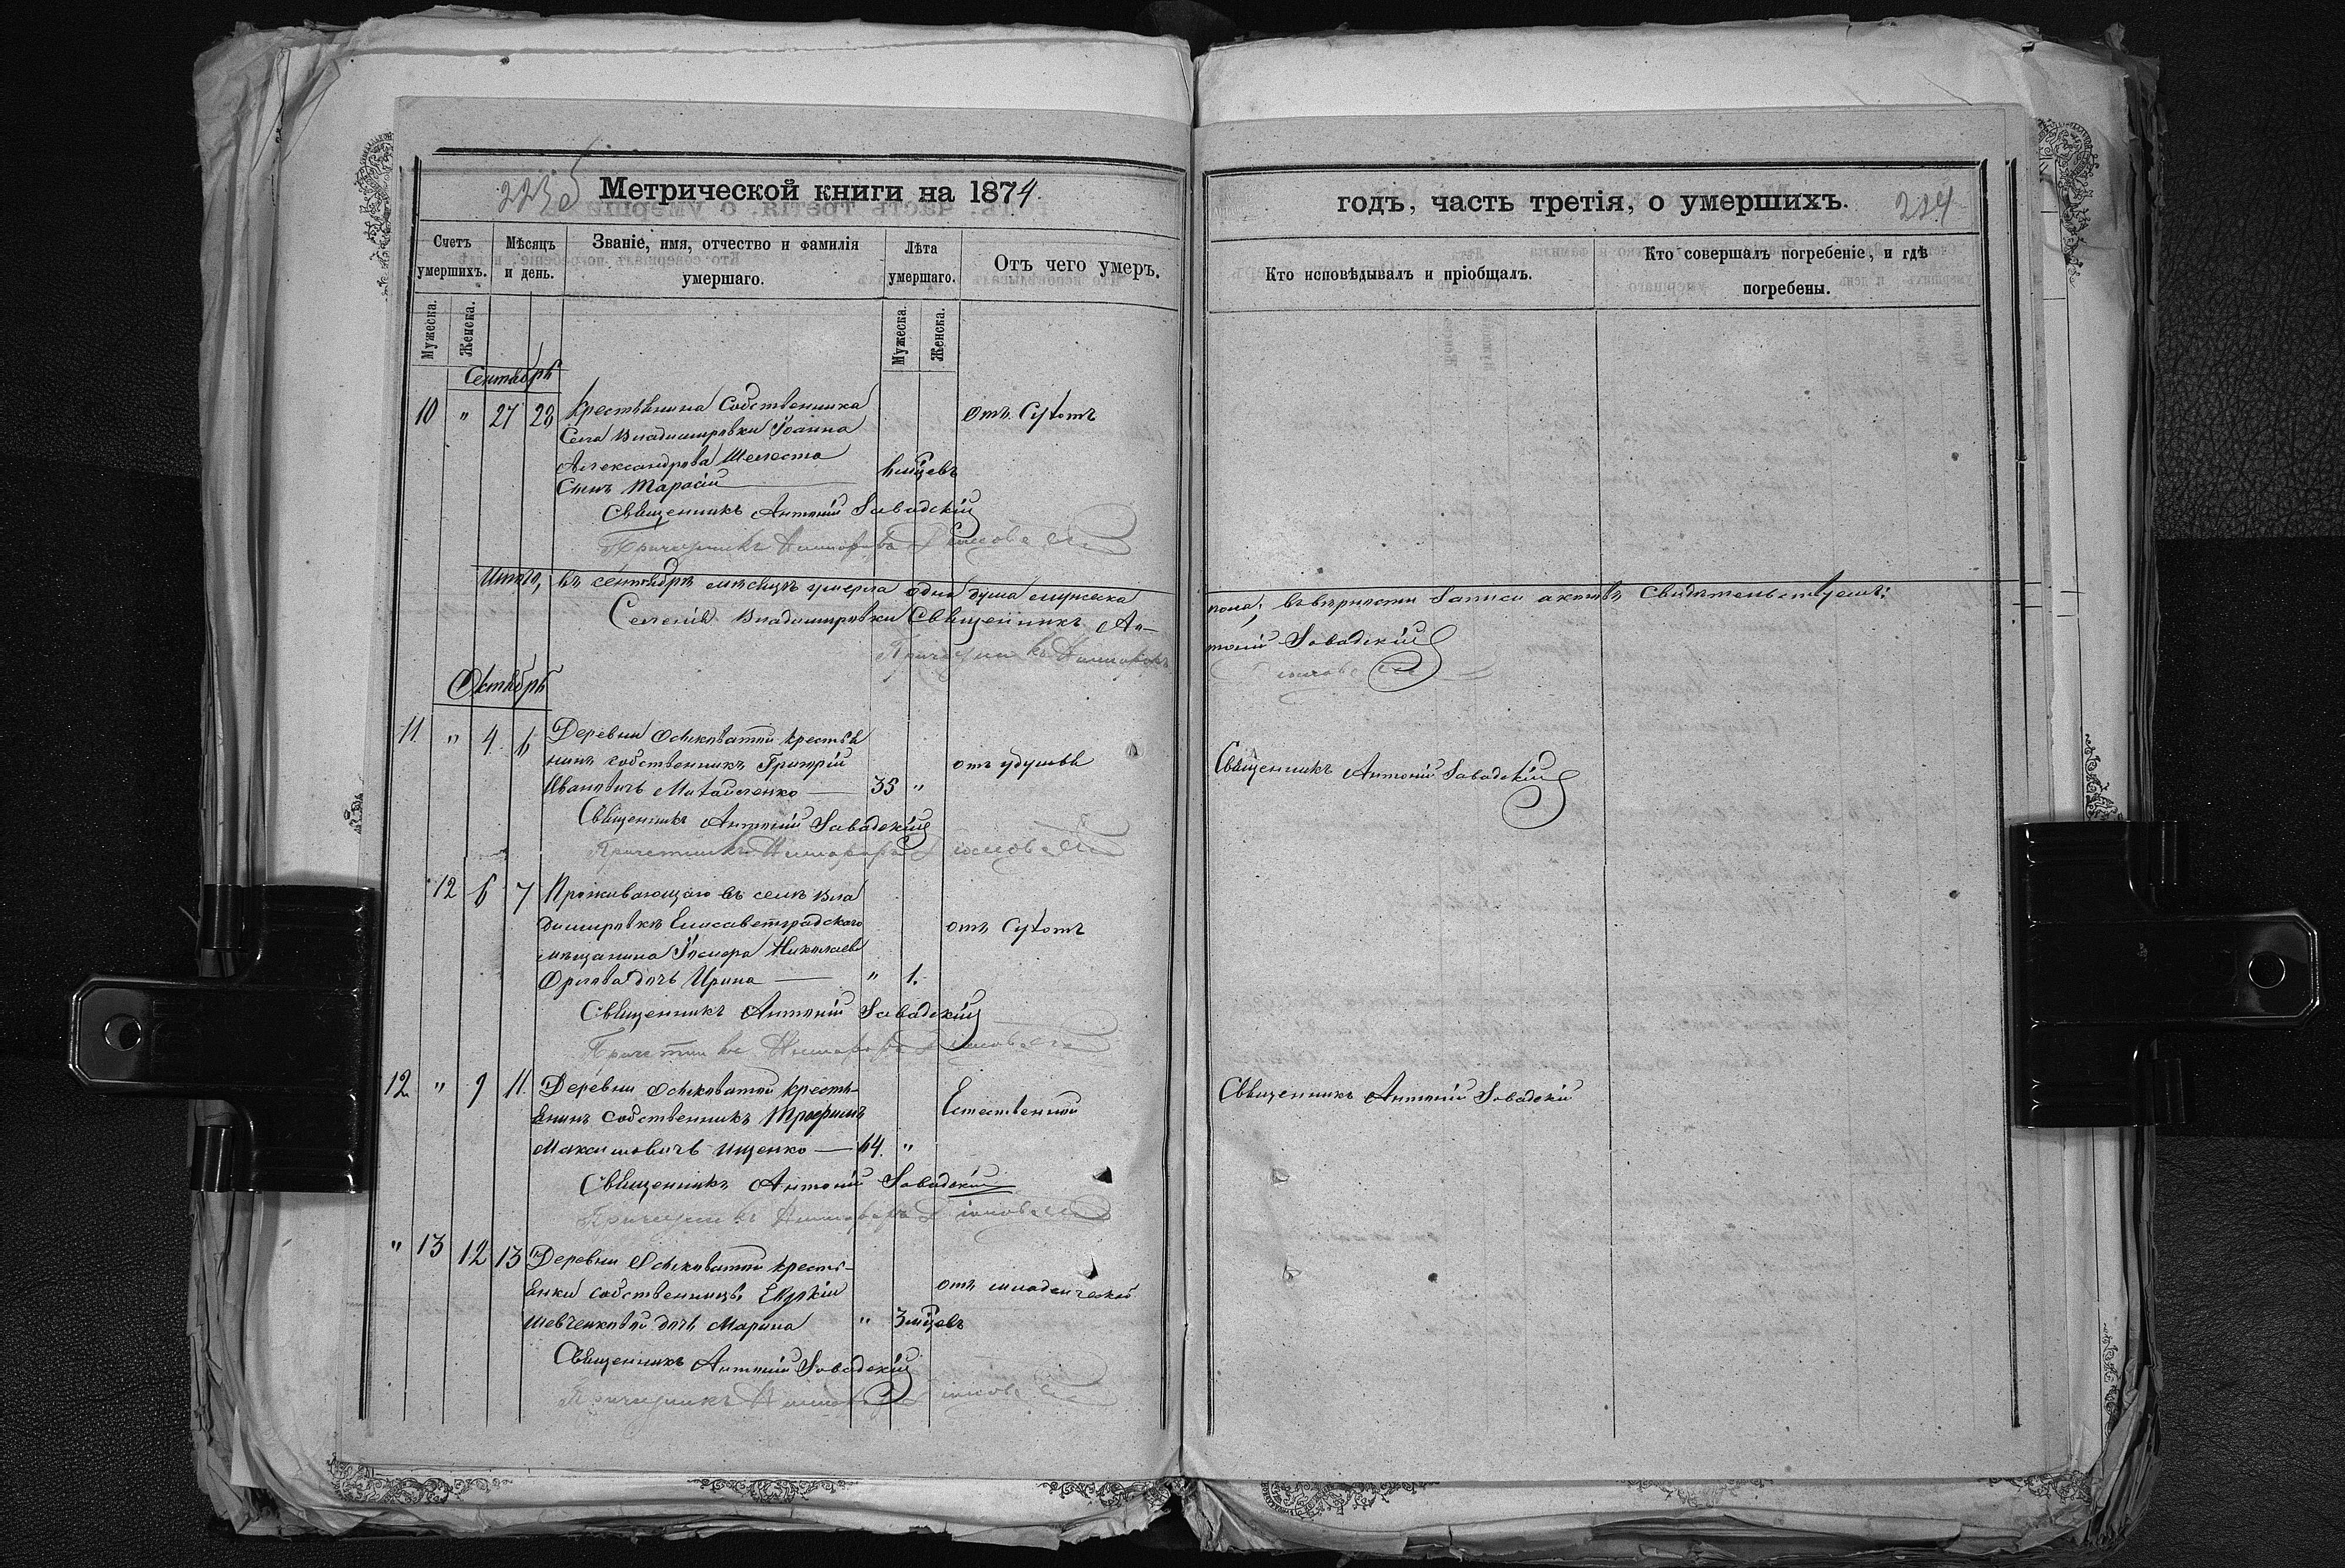 223 б
Метрической книги на 1874.
Счетъ умершихъ.
Мѣсяцъ и день.
Званіе, имя, отчество и фамилія умершаго.
Лѣта умершаго.
Отъ чего умеръ.
Мужеска.
Женска.
Мужеска.
Женска.
Сентябрь
10 " 27 28 Крестьянина Собственника отъ Сухотъ
Села Владимировки Іоанна
Александрова Шелеста
Сынъ Тарасій 6 мцевъ
Священникъ Антоній Завадскій
Причетникъ
Итого, въ сентябрѣ мѣсяцѣ умерла одна душа мужеска
Селенія Владимировки Священникъ Ан-
Причетникъ
Октябрь
11. " 4. 6 Деревни Осиковатой крестья
нинъ собственникъ Григорій отъ удушья
Ивановичъ Михайленко 33 "
Священникъ Антоній Завадскій
Причетникъ
12 6 7 Проживающаго въ селѣ Вла
димировкѣ Елисаветградскаго отъ Сухотъ
мѣщанина Николаева
Орлова дочь Ирина " 1.
Священникъ Антоній Завадскій
Причетникъ
12 " 9 11. Деревни Осиковатой кресть-
янинъ собственникъ Трофимъ Естественной
Максимовичъ Ищенко 64. "
Священникъ Антоній Завадскій
Причетникъ
" 13 12 13 Деревни Осиковатой кресть-
янки собственницы отъ младенческой
Шевченковой дочь Марина " 3 мцевъ
Священникъ Антоній Завадскій
Причетникъ
годъ, часть третія, о умершихъ.
224
Кто исповѣдывалъ и пріобщалъ.
Кто совершалъ погребеніе, и гдѣ погребены.
пола, въ вѣрности записи актовъ свидѣтельствуемъ:
тоній Завадскій
Священникъ Антоній Завадскій
Священникъ Антоній Завадскій